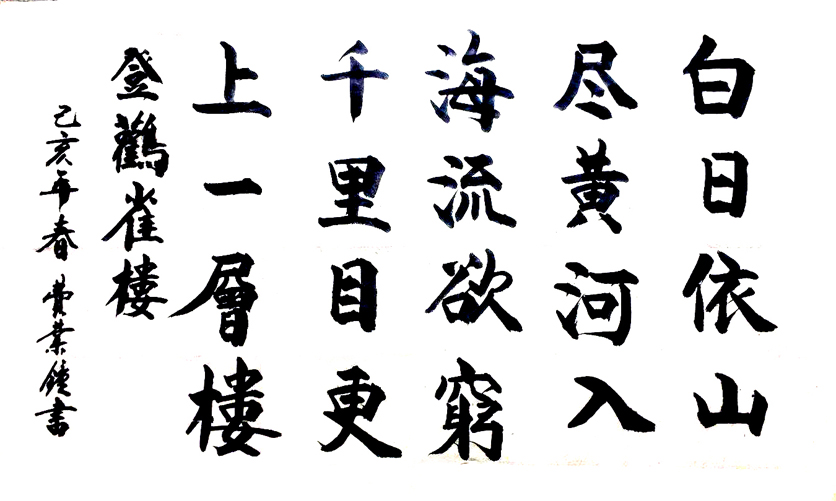 白日依山
尽黄河入
海流欲窮
千里目更
上一層樓
登鸛雀樓
己亥年春 費業鏡書